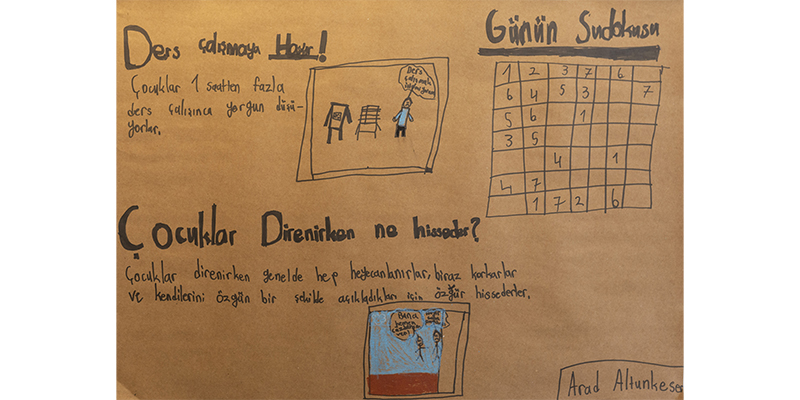 Ders çalışmaya Hayır!
Çocuklar 1 saatten fazla
ders çalışınca yorgun düşü-
yorlar.
Ders
çalışmak
istemiyorum
Günün Sudokusu
1 2 3 7 6
6 4 5 3 7
5 6 1
3 5
4 1
4 7
1 7 2 6
Çocuklar Direnirken ne hisseder?
Çocuklar direnirken genelde hep heyecanlanırlar, biraz korkarlar
ve kendilerini özgün bir şekilde açıkladıkları için özgür hissederler.
Bana
Arad Altunkeser